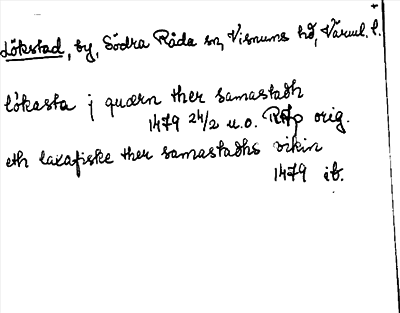 Lökstad, by, Södra Råda sn, Visnums hd, Värml. l.
lökasta j quærn ther samastadh
1479 24/2 u.o. RAp orig.
eth laxafiske ther samastadhs vikin
1479 ib.